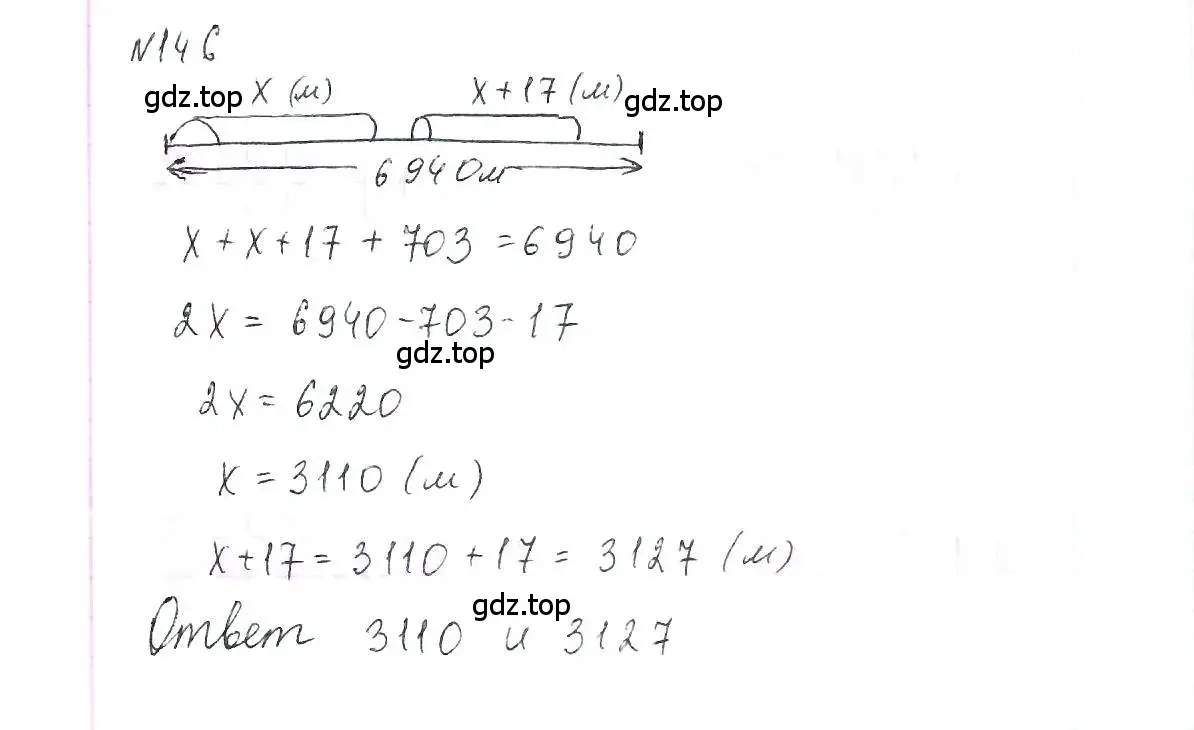 №146
gdz.top x (м) x+17 (м) gdz.top
6940м
x + x + 17 + 703 = 6940
2x = 6940-703-17
gdz.top
2x = 6220
x = 3110 (м)
x+17 = 3110 + 17 = 3127 (м)
gdz.top
Ответ 3110 и 3127